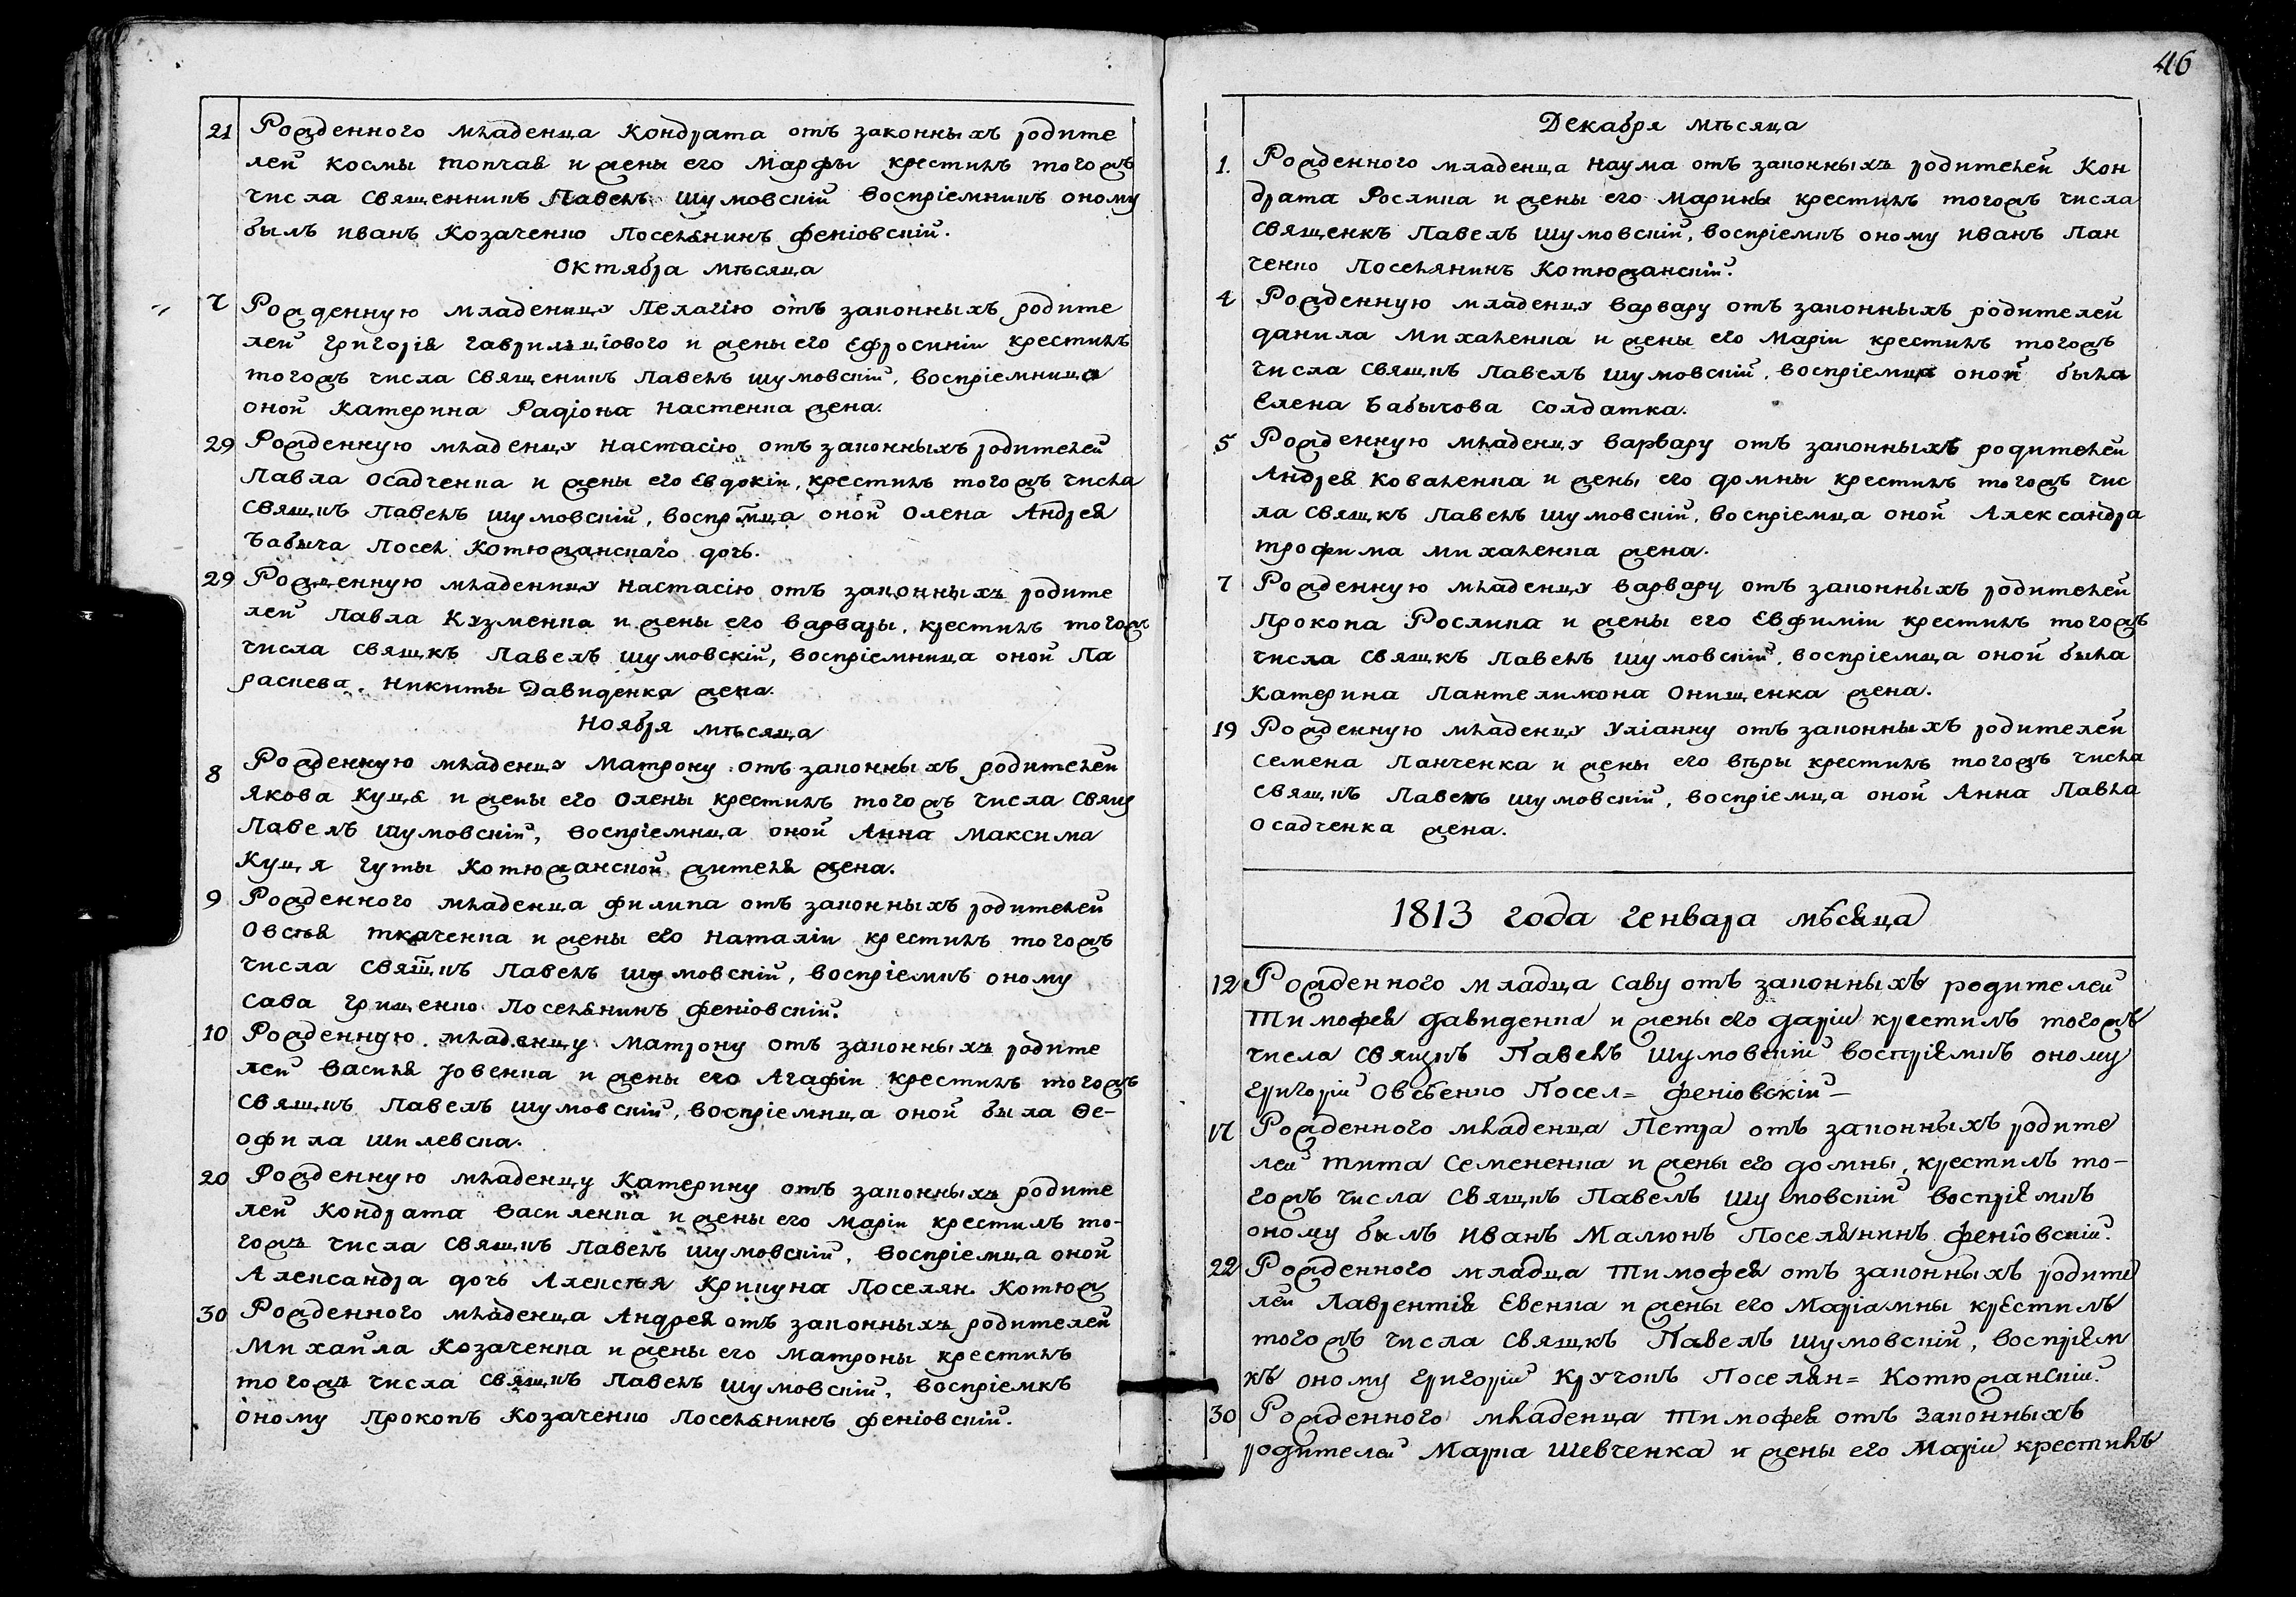 21 Рожденного младенца Кондрата отъ законныхъ родите
лей Космы Топчая и жены его Марфы крестилъ тогожъ
числа Священникъ Павелъ Шумовскій воспріемникъ оному
былъ Иванъ Козаченко Поселянинъ Феніовскій.
Октября мѣсяца
7 Рожденную младеницу Пелагію отъ законныхъ родите
лей Григорія Гаврильцiового и жены его Ефросиніи крестилъ
тогожъ числа Священикъ Павелъ Шумовскій, воспріемница
оной Катерина Радіона Настенка жена.
29 Рожденную младенцу Настасію отъ законныхъ родителей
Павла Осадченка и жены его Евдокіи, крестилъ тогожъ числа
Свящкъ Павелъ Шумовскій, воспрмца оной Олена Андрея
Бабыча Посел Котюжанскаго дочь.
29 Рожденную младеницу Настасію отъ законныхъ родите
лей Павла Кузменка и жены его Варвары, крестилъ тогожъ
числа Свящкъ Павелъ Шумовскій, воспріемница оной Па
раскева Никиты Давиденка жена.
Ноября мѣсяца
8 Рожденную младенцу Матрону отъ законныхъ родителей
Якова Куця и жены его Олены крестилъ тогожъ числа Свящ
Павелъ Шумовскій, воспріемница оной Анна Максима
Куця Гуты Котюжанской жителя жена.
9 Рожденного младенца Филипа отъ законныхъ родителей
Овсѣя Ткаченка и жены его Наталіи крестилъ тогожъ
числа Свящкъ Павелъ Шумовскій, воспріемкъ оному
Сава Грищенко Поселянинъ Феніовскій.
10 Рожденную младенцу Матрону отъ законныхъ родите
лей Василя Ювенка и жены его Агафіи крестилъ тогожъ
Свящкъ Павелъ Шумовскій, воспріемница оной была Ѳе-
офила Шилевска.
20 Рожденную младенцу Катерину отъ законныхъ родите
лей Кондрата Василенка и жены его Маріи крестилъ то-
гожъ числа Свящкъ Павелъ Шумовскій, воспріемца оной
Александра дочь Алексѣя Крицуна Поселян. Котюж
30 Рожденного младенца Андрея отъ законныхъ родителей
Михайла Козаченка и жены его Матроны крестилъ
тогожъ числа Свящкъ Павелъ Шумовскій, воспріемкъ
оному Прокопъ Козаченко Поселянинъ Феніовскій.
46
Декабря мѣсяца
1. Рожденного младенца Наума отъ законныхъ родителей Кон
драта Рослика и жены его Марины крестилъ тогожъ числа
Священкъ Павелъ Шумовскій, воспріемкъ оному Иванъ Пан
ченко Поселянинъ Котюжанскій.
4 Рожденную младенцу Варвару отъ законныхъ родителей
Данила Михаленка и жены его Маріи крестилъ тогожъ
числа Свящкъ Павелъ Шумовскій, воспріемца оной была
Елена Бабычова Солдатка.
5 Рожденную младенцу Варвару отъ законныхъ родителей
Андрея Коваленка и жены его Домны крестилъ тогожъ чис
ла Свящкъ Павелъ Шумовскій, воспріемца оной Александра
Трофима Михаленка жена.
7 Рожденную младенцу Варвару отъ законныхъ родителей
Прокопа Рослика и жены его Евфиміи крестилъ тогожъ
числа Свящкъ Павелъ Шумовскій, воспріемца оной была
Катерина Пантелимона Онищенка жена.
19 Рожденную младенцу Уліанну отъ законныхъ родителей
Семена Панченка и жены его Вѣры крестилъ тогожъ числа
Свящкъ Павелъ Шумовскій, воспріемца оной Анна Павла
Осадченка жена.
1813 года Генвара мѣсяца
12 Рожденного младца Саву отъ законныхъ родителей
Тимофея Давиденка и жены его Даріи крестилъ тогожъ
числа Свящкъ Павелъ Шумовскій воспріемкъ оному
Григорій Овсѣенко Посел= Феніовскій—
17 Рожденного младенца Петра отъ законныхъ родите
лей Тита Семененка и жены его Домны, крестилъ то-
гожъ числа Свящкъ Павелъ Шумовскій воспріемкъ
оному былъ Иванъ Малюкъ Поселянинъ Феніовскій.
22 Рожденного младца Тимофея отъ законныхъ родите
лей Лаврентія Евенка и жены его Маріамны крестилъ
тогожъ числа Свящкъ Павелъ Шумовскій, воспріем
къ оному Григорій Кручокъ Поселян= Котюжанскій.
30 Рожденного младенца Тимофея отъ законныхъ
родителей Марка Шевченка и жены его Маріи крестилъ